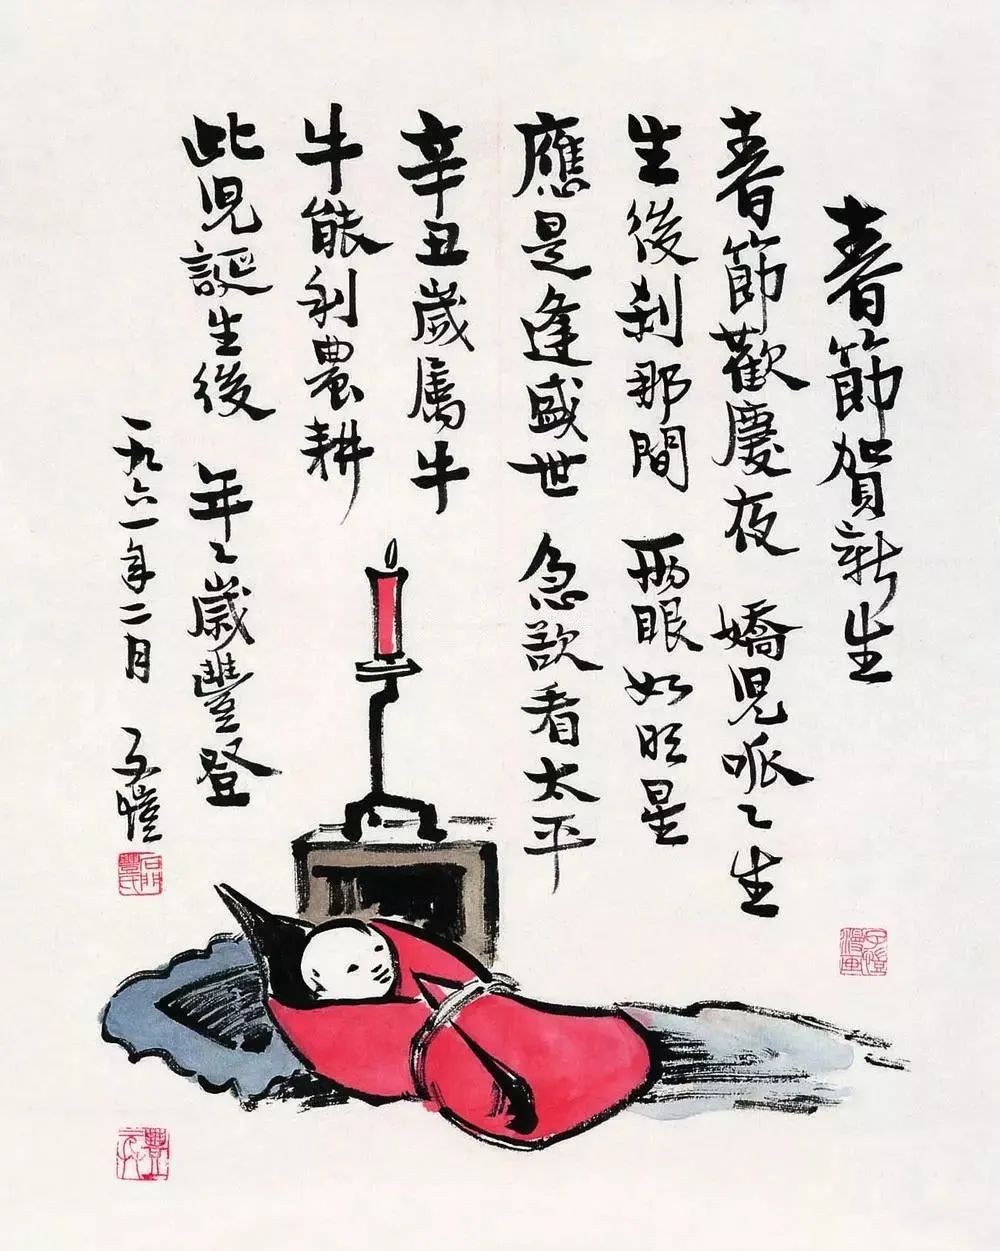 春節賀新生
春節歡慶夜 嬌兒呱々生
生後刹那間 兩眼如明星
應是逢盛世 急欲看太平
辛丑歲屬牛
牛能利農耕
此兒誕生後 年々歲豐登
一九六一年二月 子愷
石門豐氏
子愷漫画